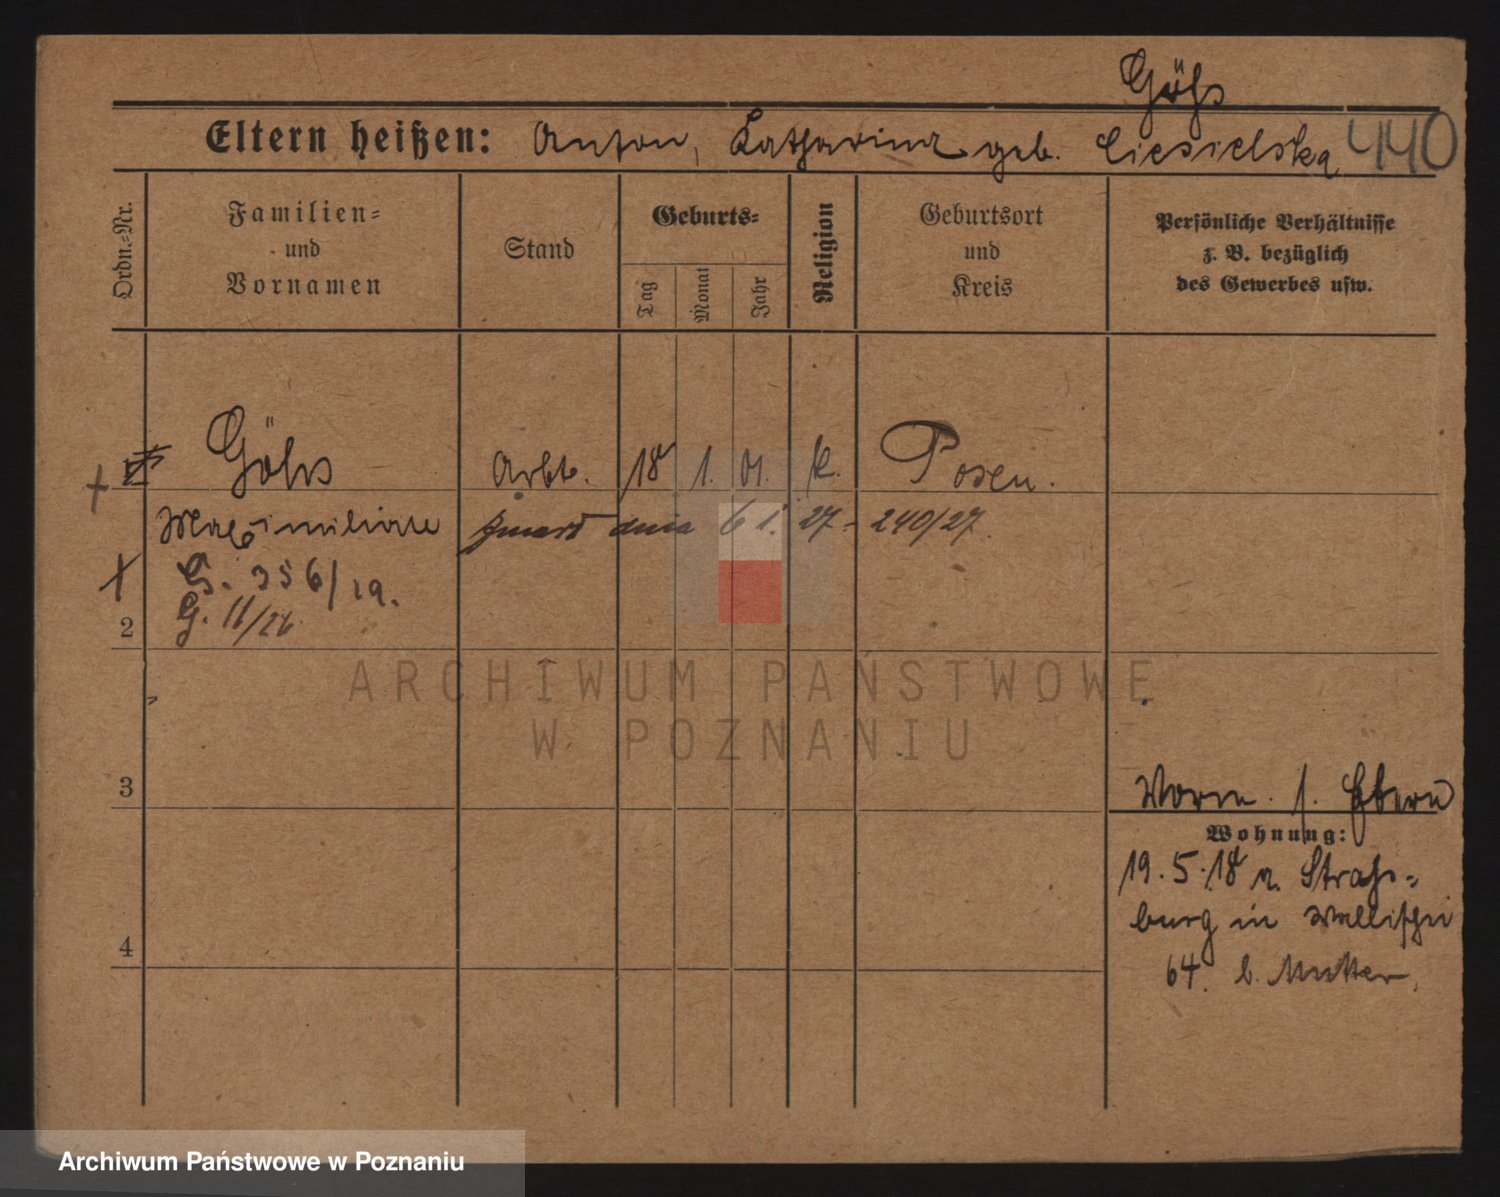 Göhs
Eltern heißen: Anton, Katharina geb. Ciesielska 440
Ordn.-Nr.
Familien-
und
Vornamen
Stand
Geburts-
Tag
Monat
Jahr
Religion
Geburtsort
und
Kreis
Persönliche Verhältnisse
z. B. bezüglich
des Gewerbes usw.
Göhs Arbt. 18 1. 01. k. Posen.
Maximiliane zmarł dnia 6 1. 27 - 240/27.
G. 356/19.
G. 11/26
2
ARCHIWUM PAŃSTWOWE
W POZNANIU
3
Vorm. f. Eltern
Wohnung:
19. 5. 18 a. Straß-
burg in Wallischei
4
64. b. Mutter.
Archiwum Państwowe w Poznaniu